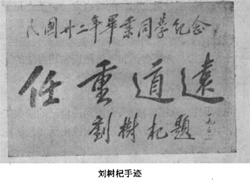 民國廿二年畢業同學紀念
任重道遠
劉樹杞題
刘树杞手迹